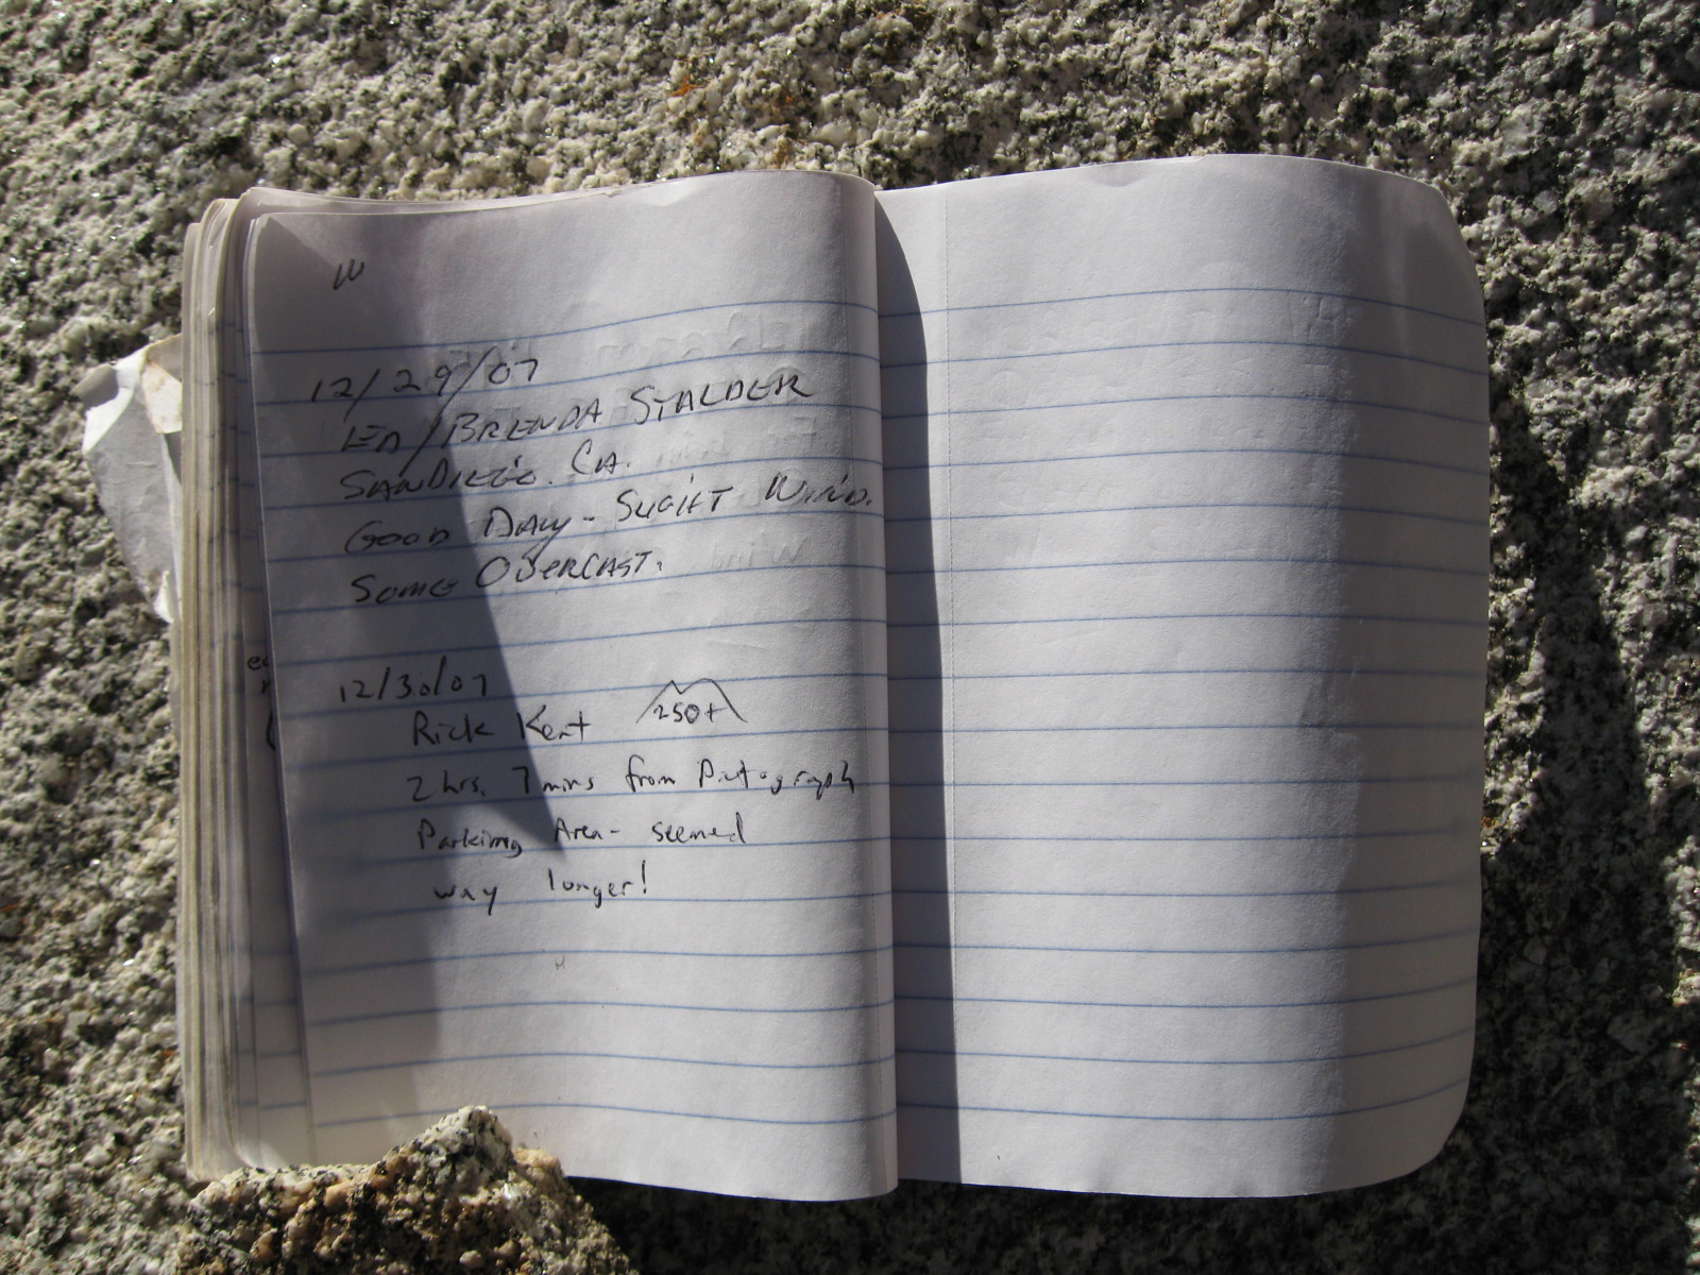 12/29/07
Ed/Brenda Stalder
San Diego. Ca.
Good Day - Slight Wind.
Some Overcast.
12/30/07
Rick Kent 250+
2 hrs. 7 mins from Pictograph
Parking Area - seemed
way longer!